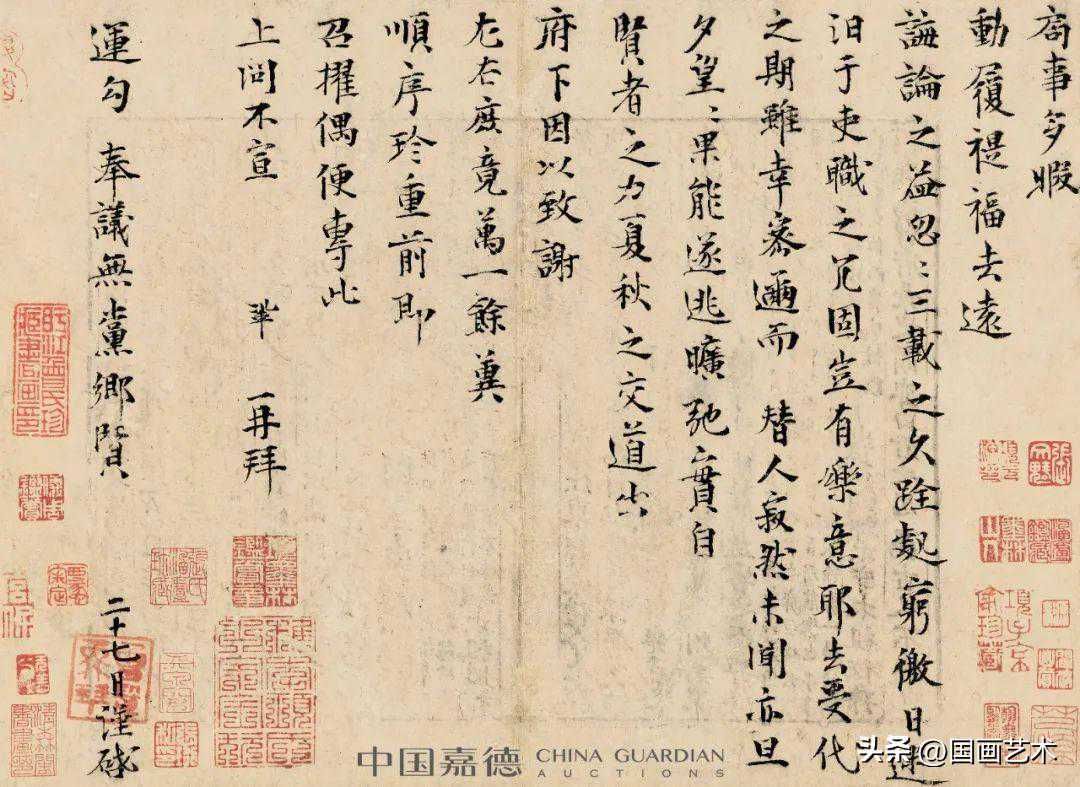 局事多暇
動履禔福去遠
誨論之益忽〻三載之久跧處窮徼日迷
汨于吏職之冗固豈有樂意耶去受代
之期雖幸密邇而　替人寂然未聞亦旦
夕望〻果能遂逃曠弛實自
賢者之力夏秋之交道出
府下因以致謝
左右庶竟萬一餘冀
順序珍重前即
召擢偶便專此
上問不宣　鞏　再拜
運勾　奉議無黨鄉賢　二十七日謹啟
中国嘉德 CHINA GUARDIAN AUCTIONS
头条 @国画艺术